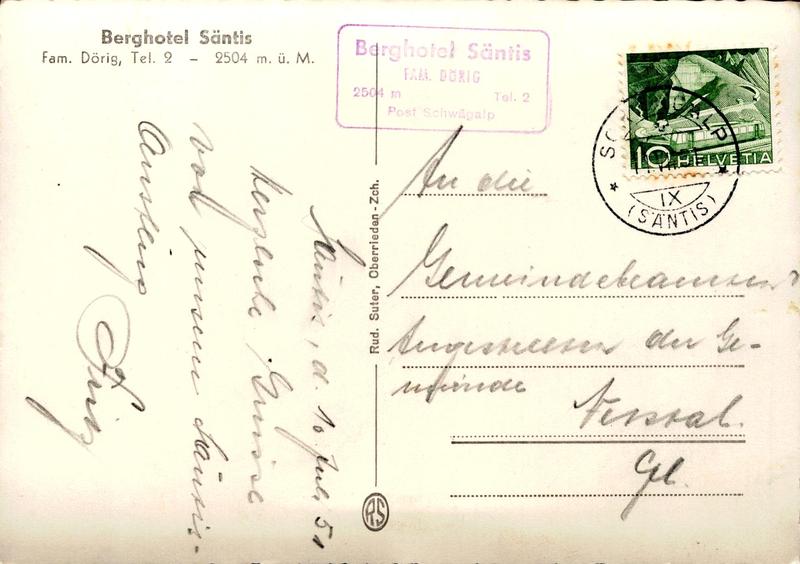 Berghotel Säntis
Fam. Dörig, Tel. 2 – 2504 m. ü. M.
Berghotel Säntis
FAM. DÖRIG
2504 m Tel. 2
Post Schwägalp
10 HELVETIA
IX
(SÄNTIS)
Säntis, d. 10 Juli 51
Herzliche Grüsse
von unserem Säntis-
Rud. Suter, Oberrieden-Zch.
RS
An die
Gemeindebeamten
Angestellten der Ge-
meinde
Netstal.
Gl.